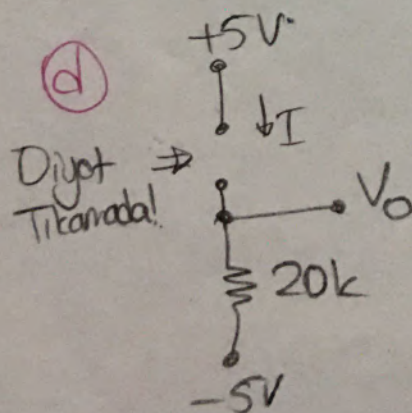 +5V
d
↓I
Diyot ⇒
Tıkamada!
Vo
20k
-5V